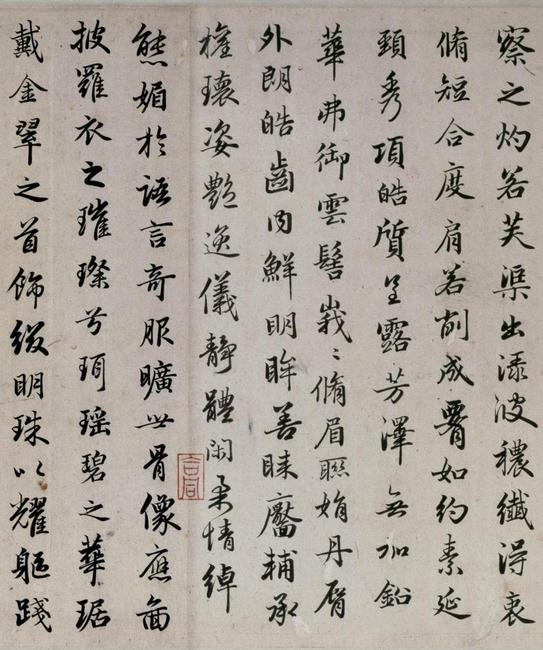 察之灼若芙渠出渌波穠纖得衷
脩短合度肩若削成腰如約素延
頸秀項皓質呈露芳澤無加鉛
華弗御雲髻峩〻脩眉聮娟丹脣
外朗皓齒內鮮明眸善睞靨輔承
權瓌姿艷逸儀靜體閑柔情綽
態媚於語言奇服曠世骨像應圖
披羅衣之璀璨兮珥瑤碧之華琚
戴金翠之首飾綴明珠以耀軀踐